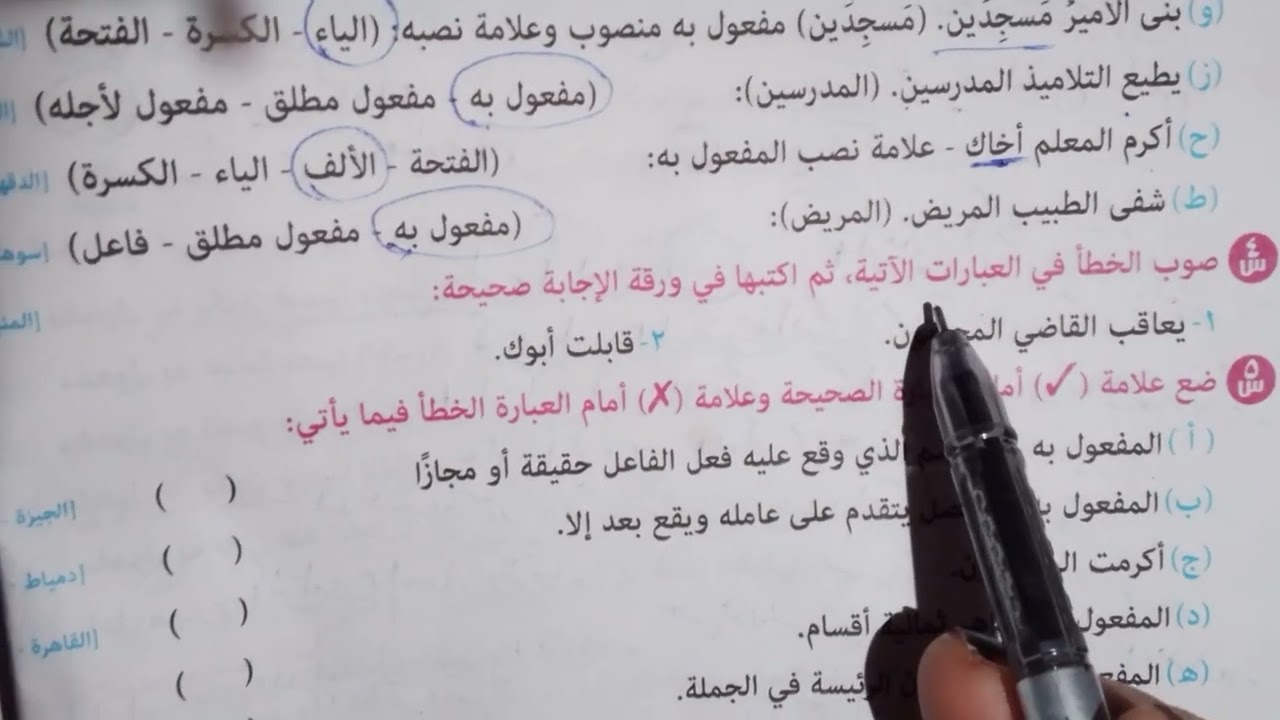 (و) بنى الأمير مَسجِدَين. (مَسجِدَين) مفعول به منصوب وعلامة نصبه: (الياء - الكسرة - الفتحة)
(ز) يطيع التلاميذ المدرسين. (المدرسين): (مفعول به - مفعول مطلق - مفعول لأجله)
(ح) أكرم المعلم أخاك - علامة نصب المفعول به: (الفتحة - الألف - الياء - الكسرة)
(ط) شفى الطبيب المريض. (المريض): (مفعول به - مفعول مطلق - فاعل)
س٤ صوب الخطأ في العبارات الآتية، ثم اكتبها في ورقة الإجابة صحيحة:
١- يعاقب القاضي ٢- قابلت أبوك.
س٥ ضع علامة (✓) الصحيحة وعلامة (✗) أمام العبارة الخطأ فيما يأتي:
(أ) المفعول به الذي وقع عليه فعل الفاعل حقيقة أو مجازًا ( ) [الجيزة
(ب) المفعول يتقدم على عامله ويقع بعد إلا. ( ) [دمياط
(ج) أكرمت ( ) [القاهرة
(د) المفعول أقسام. ( )
(هـ) الرئيسة في الجملة.